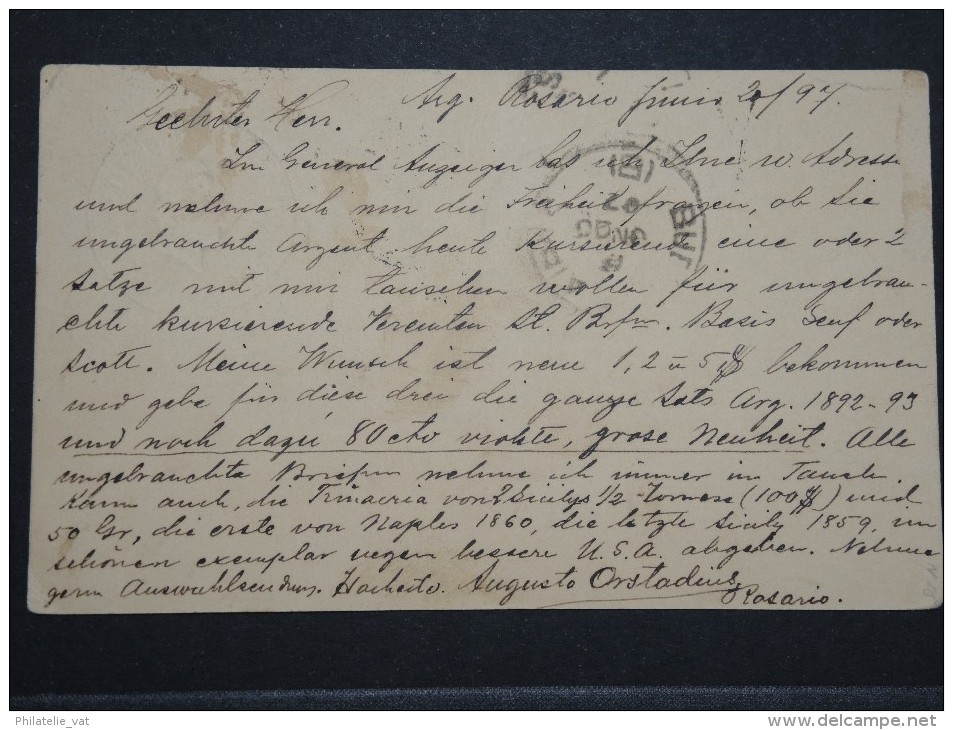 Arg. Rosario Junio 2/97.
Geehrter Herr.
Im General Anzeiger las ich Ihre w. Adresse
und nehme ich mir die Freiheit fragen, ob Sie
ungebrauchte Argent. heute Kursirende eine oder 2
Satze mit mir tauschen wollen für ungebrau-
chte kursierende Vereinten St. Brfm. Basis Senf oder
Scott. Meine Wunsch ist neue 1, 2 u 5 $ bekommen
und gebe für diese drei die ganze Sats Arg. 1892-93
und noch dazu 80 cto violete, grose Neuheit. Alle
ungebrauchte Briefm nehme ich immer im Tausch.
Kann auch, die Trinacria von Sicilys 1/2 Tornese (100 $) und
50 Gr, die erste von Naples 1860, die letzte Sicily 1859, im
schönen exemplar wegen bessere U.S.A. abgeben. Nehme
gern Auswahlsendun. Hochito. Augusto Orstadius,
Rosario.
BUE
Philatelie_vat
http://www.delcampe.net